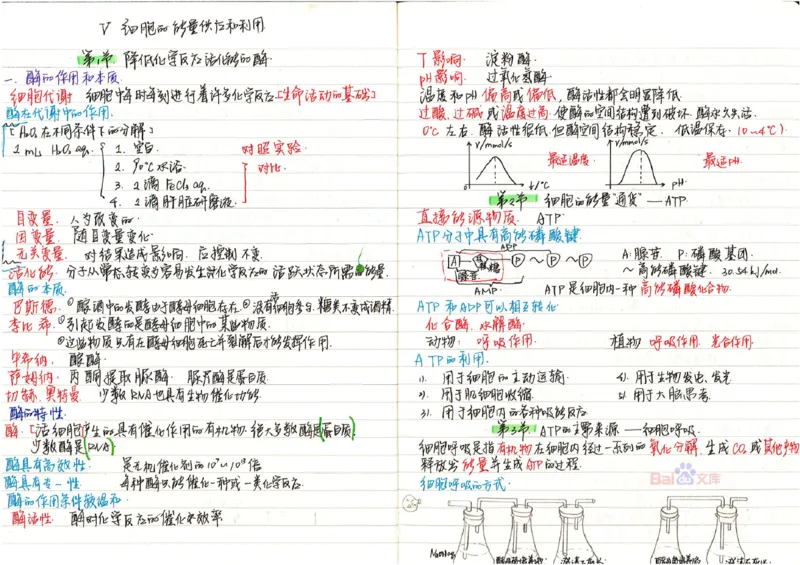 V 细胞的能量供应和利用
第1节 降低化学反应活化能的酶
一、酶的作用和本质
细胞代谢: 细胞中每时每刻进行着许多化学反应[生命活动的基础]
酶在代谢中的作用
[H₂O₂在不同条件下的分解]
2 mL H₂O₂ aq. 1. 空白 对照实验
2. 90℃水浴 对比
3. 2滴 FeCl₃ aq.
4. 2滴肝脏研磨液
自变量: 人为改变的
因变量: 随自变量变化
无关变量: 对结果造成影响, 应控制不变
活化能: 分子从常态转变为容易发生化学反应的活跃状态所需的能量
酶的本质
巴斯德: ①酿酒中的发酵由于酵母细胞存在 ②没有细胞参与, 糖类不变成酒精
李比希: ①引起发酵的是酵母细胞中的某些物质
②这些物质只有在酵母细胞死亡并裂解后才能发挥作用
毕希纳: 酿酶
萨姆纳: 丙酮提取脲酶 脲酶是蛋白质
切赫、奥特曼: 少数RNA也具有生物催化功能
酶的特性
酶: [活细胞产生的具有催化作用的有机物, 绝大多数酶是(蛋白质),
少数酶是(RNA)
酶具有高效性: 是无机催化剂的10⁷~10¹³倍
酶具有专一性: 每种酶只能催化一种或一类化学反应
酶的作用条件较温和
酶活性: 酶对化学反应的催化效率
T 影响: 淀粉酶
pH 影响: 过氧化氢酶
温度和pH偏高或偏低, 酶活性都会明显降低
过酸、过碱或温度过高, 使酶的空间结构遭到破坏, 酶永久失活
0℃左右, 酶活性很低, 但酶空间结构稳定, 低温保存 (0~4℃)
V/mmol/s 最适温度 V/mmol/s 最适pH
0 t/℃ pH
第2节 细胞的能量"通货"——ATP
直接能源物质: ATP
ATP分子中具有高能磷酸键
ADP
A 核糖 P ~ P ~ P A: 腺苷 P: 磷酸基团
腺苷 ~ 高能磷酸键 30.54 kJ/mol
AMP ATP是细胞内一种高能磷酸化合物
ATP和ADP可以相互转化
化合酶、水解酶
动物: 呼吸作用 植物: 呼吸作用、光合作用
ATP的利用
1). 用于细胞的主动运输 4). 用于生物发电、发光
2). 用于肌细胞收缩 5). 用于大脑思考
3). 用于细胞内的各种吸能反应
第3节 ATP的主要来源——细胞呼吸
细胞呼吸是指有机物在细胞内经过一系列的氧化分解, 生成CO₂或其他产物
释放出能量并生成ATP的过程
Bai 文库
细胞呼吸的方式
NaOH aq.